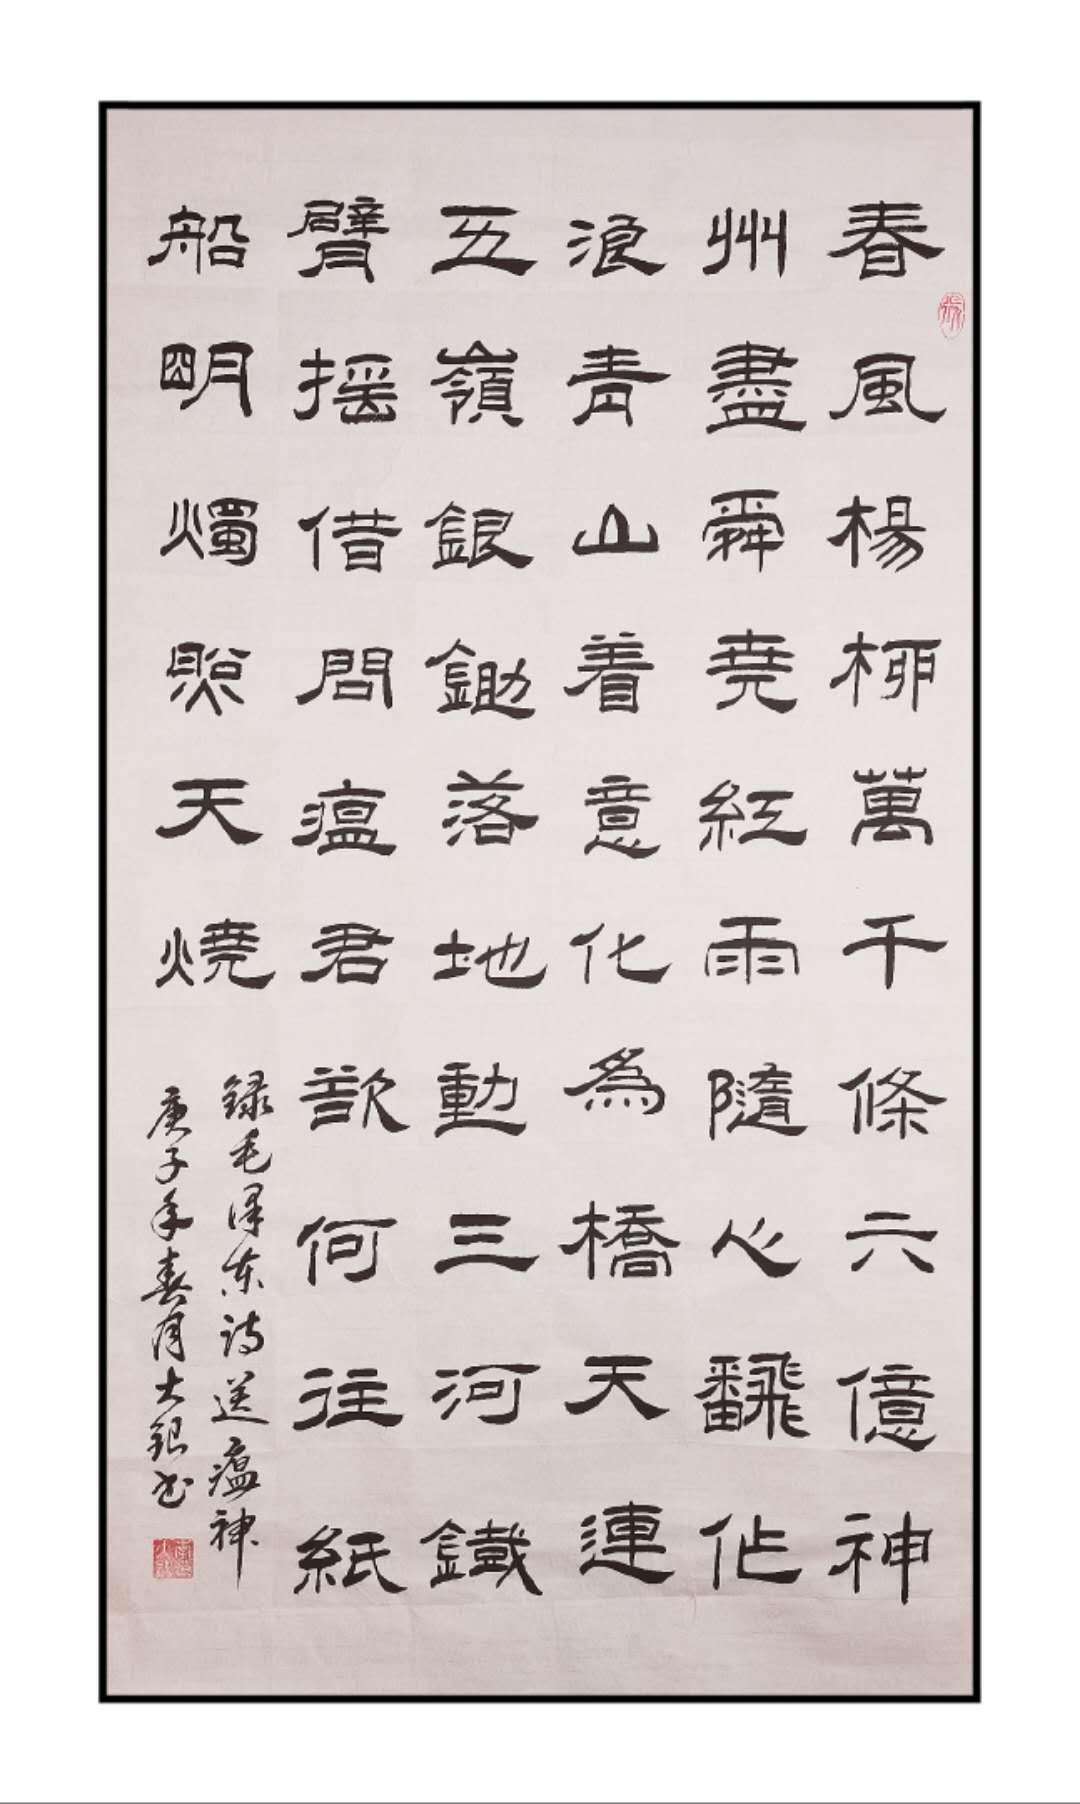 春風楊柳萬千條六億神
州盡舜堯紅雨隨心飜作
浪青山着意化為橋天連
五嶺銀鋤落地動三河鐵
臂摇借問瘟君欲何往紙
船明燭照天燒
録毛泽东诗送瘟神
庚子年春月大银书